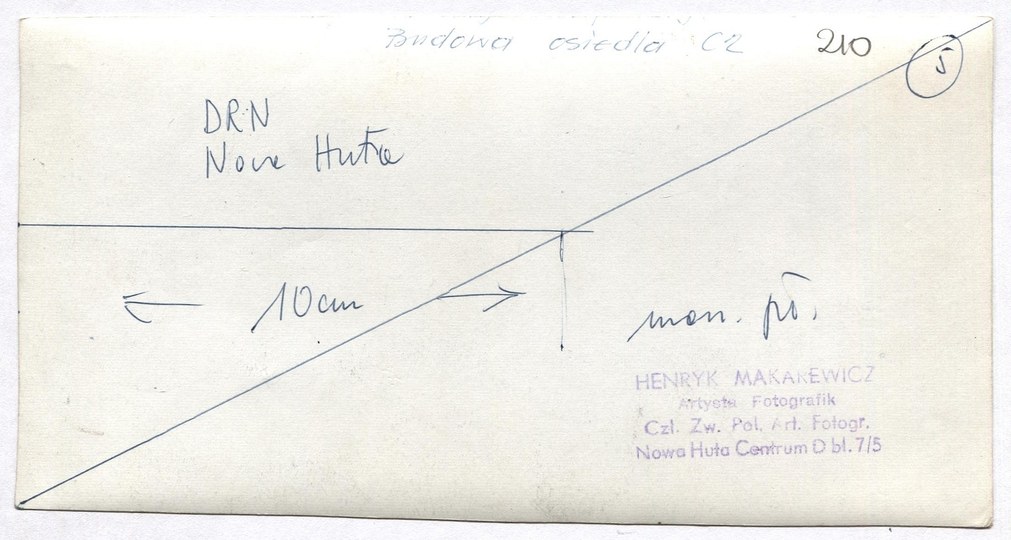 Budowa osiedla C2 210 5
DRN
Nowa Huta
10cm
mon. pł.
HENRYK MAKAREWICZ
Artysta Fotografik
Czł. Zw. Pol. Art. Fotogr.
Nowa Huta Centrum D bl. 7/5